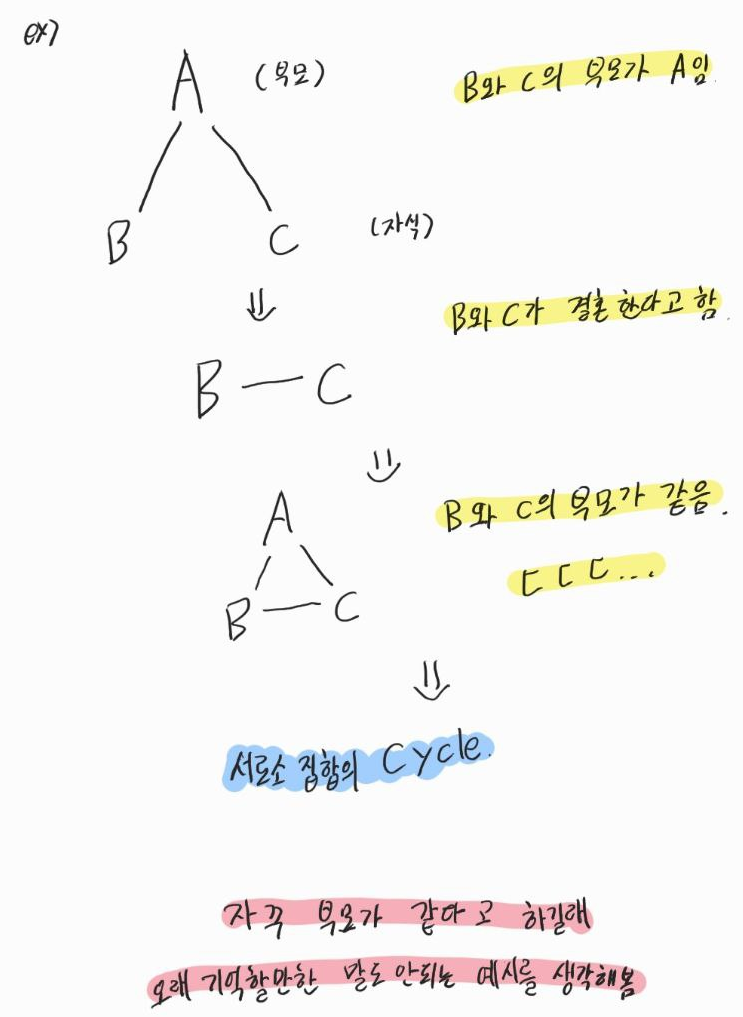 ex)
A (부모)
B와 C의 부모가 A임.
B C (자식)
B와 C가 결혼한다고 함.
B — C
A
B와 C의 부모가 같음.
B — C
ㄷㄷㄷ...
서로소 집합의 Cycle.
자꾸 부모가 같다고 하길래
오래 기억할만한 말도 안되는 예시를 생각해봄